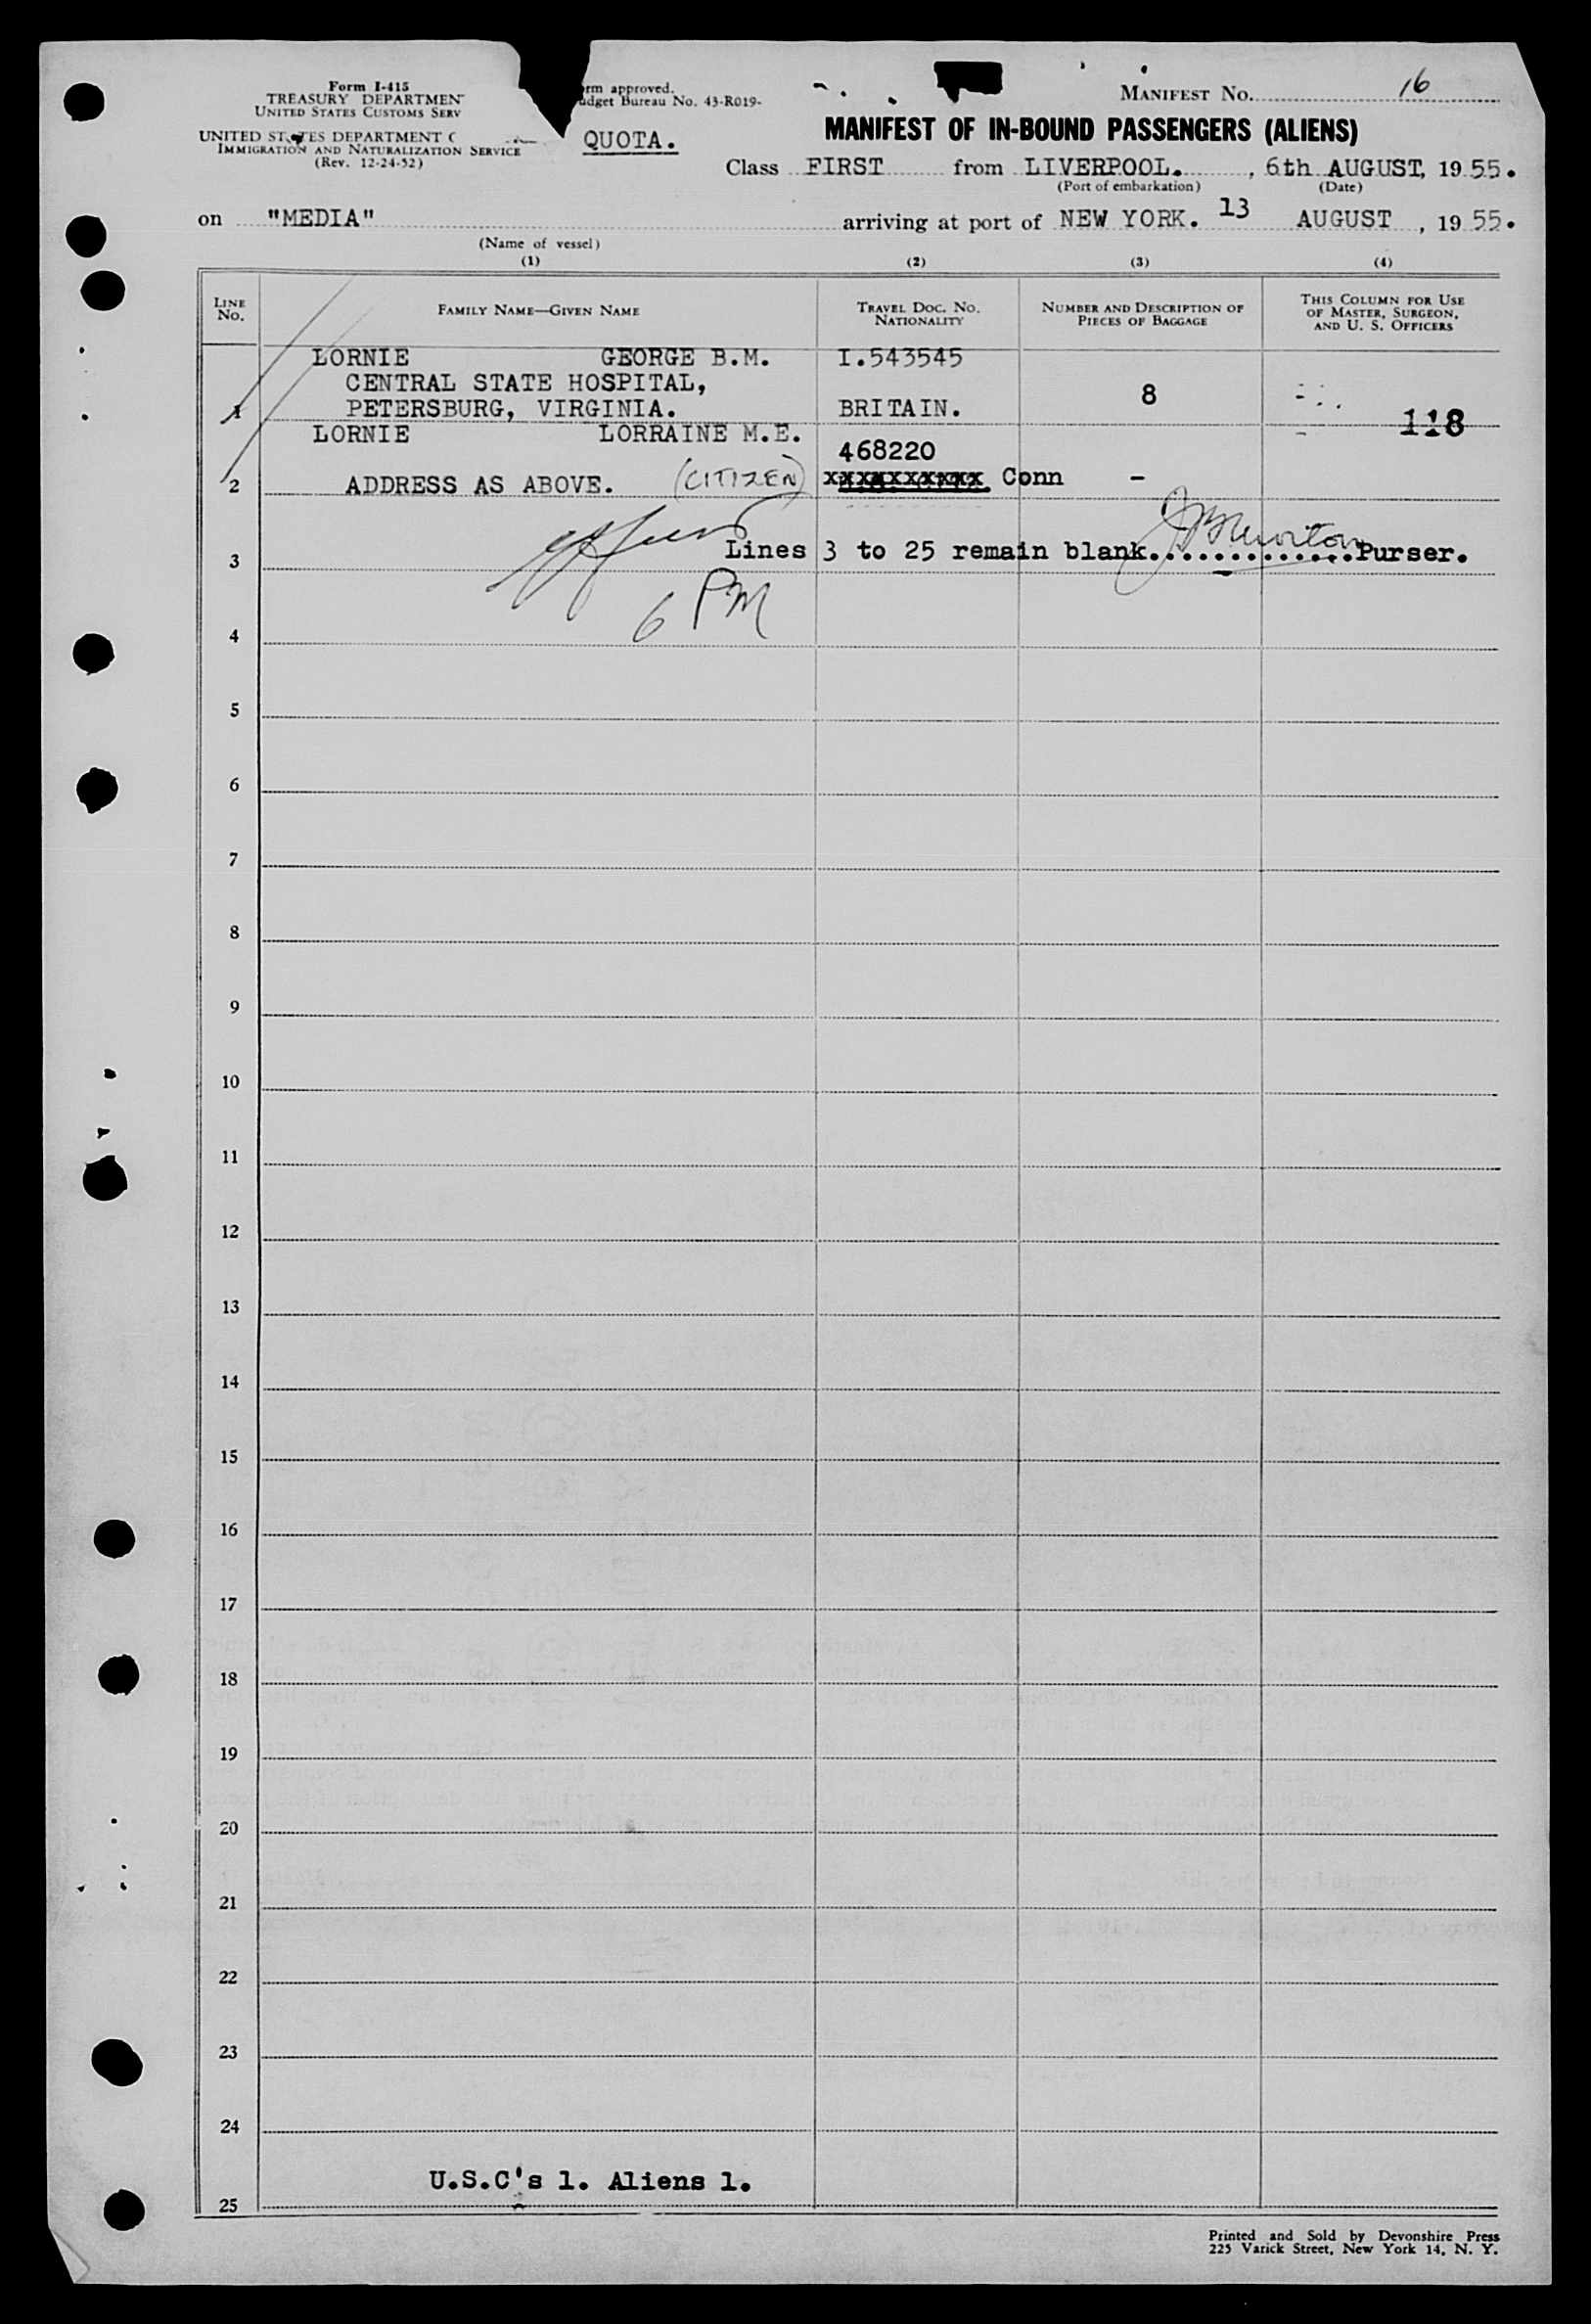 Form I-415
TREASURY DEPARTMEN
UNITED STATES CUSTOMS SERV
UNITED STATES DEPARTMENT
IMMIGRATION AND NATURALIZATION SERVICE
(Rev. 12-24-52)
rm approved.
udget Bureau No. 43-R019-
QUOTA.
MANIFEST NO. 16
MANIFEST OF IN-BOUND PASSENGERS (ALIENS)
Class FIRST from LIVERPOOL. , 6th AUGUST, 1955.
(Port of embarkation) (Date)
on "MEDIA" arriving at port of NEW YORK. 13 AUGUST , 1955.
(Name of vessel)
(1) (2) (3) (4)
LINE NO. FAMILY NAME—GIVEN NAME TRAVEL DOC. NO. NATIONALITY NUMBER AND DESCRIPTION OF PIECES OF BAGGAGE THIS COLUMN FOR USE OF MASTER, SURGEON, AND U. S. OFFICERS
LORNIE GEORGE B.M. I.543545
CENTRAL STATE HOSPITAL, 8
1 PETERSBURG, VIRGINIA. BRITAIN. 118
LORNIE LORRAINE M.E. 468220
2 ADDRESS AS ABOVE. (CITIZEN) xxxxxxxxxx Conn -
3 Lines 3 to 25 remain blank. Purser.
6 PM
4
5
6
7
8
9
10
11
12
13
14
15
16
17
18
19
20
21
22
23
24
U.S.C's 1. Aliens 1.
25
Printed and Sold by Devonshire Press
225 Varick Street, New York 14, N. Y.